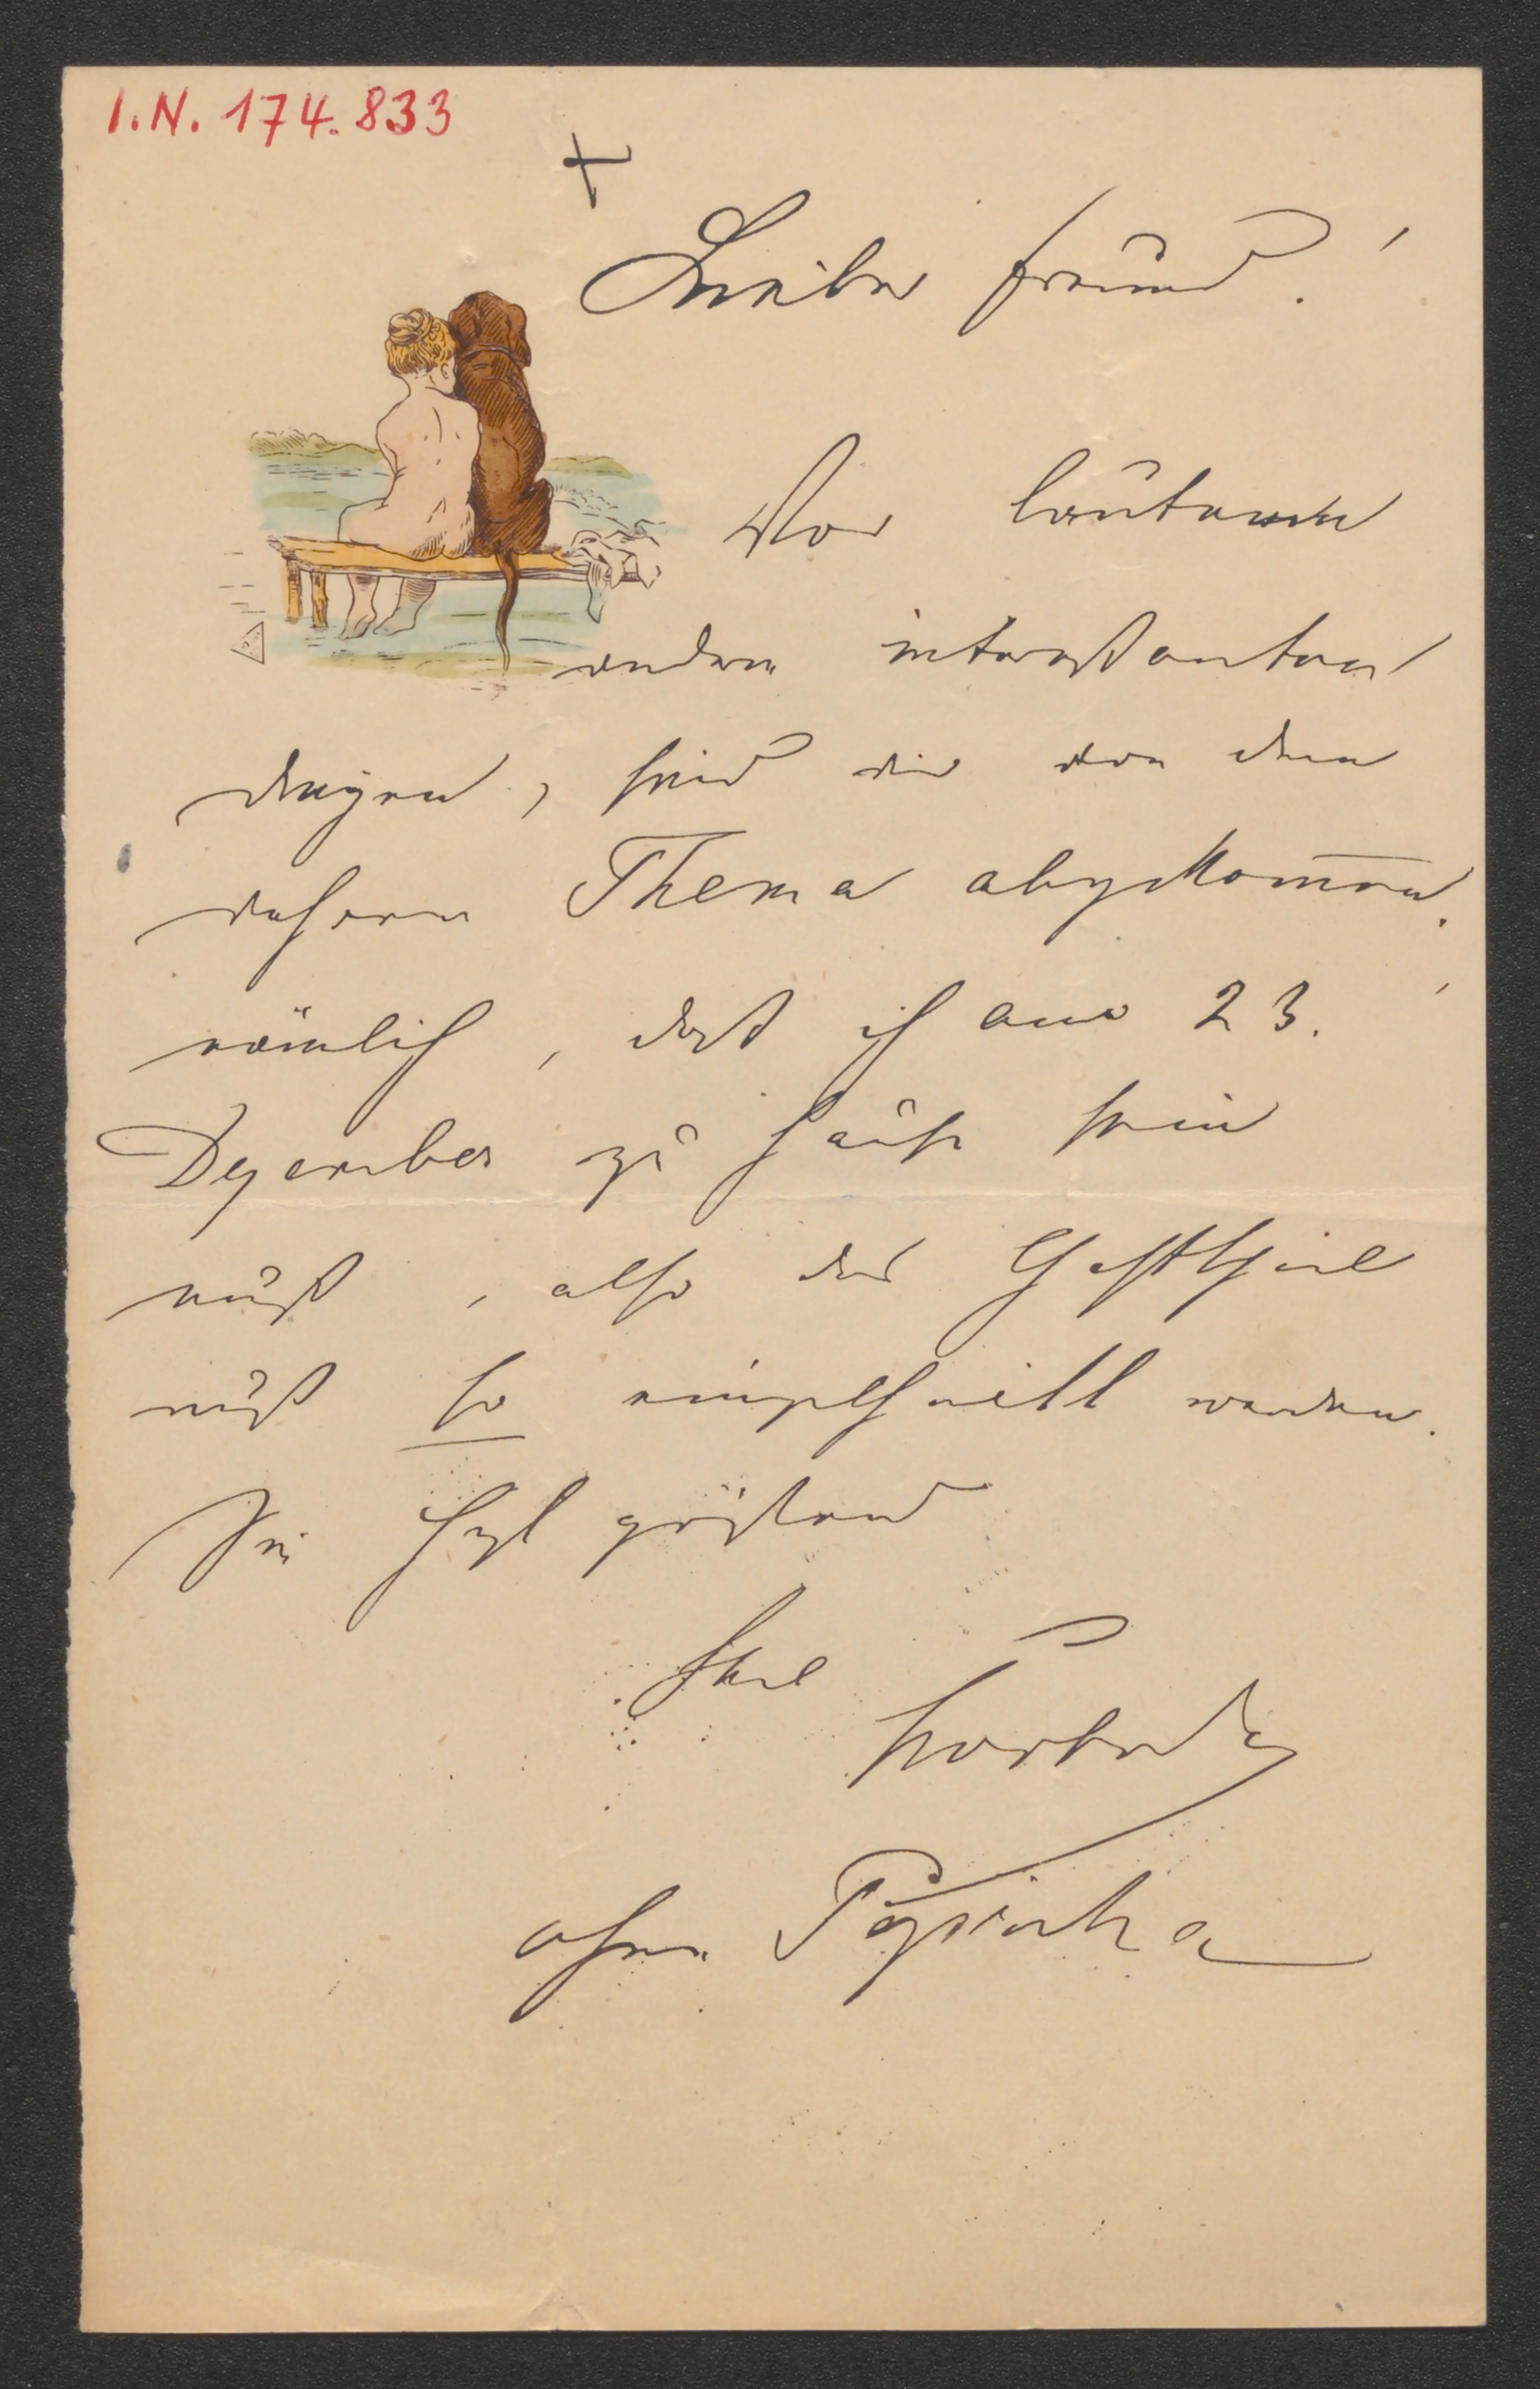 I.N. 174.833
Lieber Freund!
Vor lauter
anderen interessanten
Dingen, sind wir von dem
Thema abgekommen,
nämlich, daß ich am 23.
Dezember zu Hause sein
muß, also das Gastspiel
muß so eingetheilt werden.
Sie hzl grüßend
Ihre
ohne